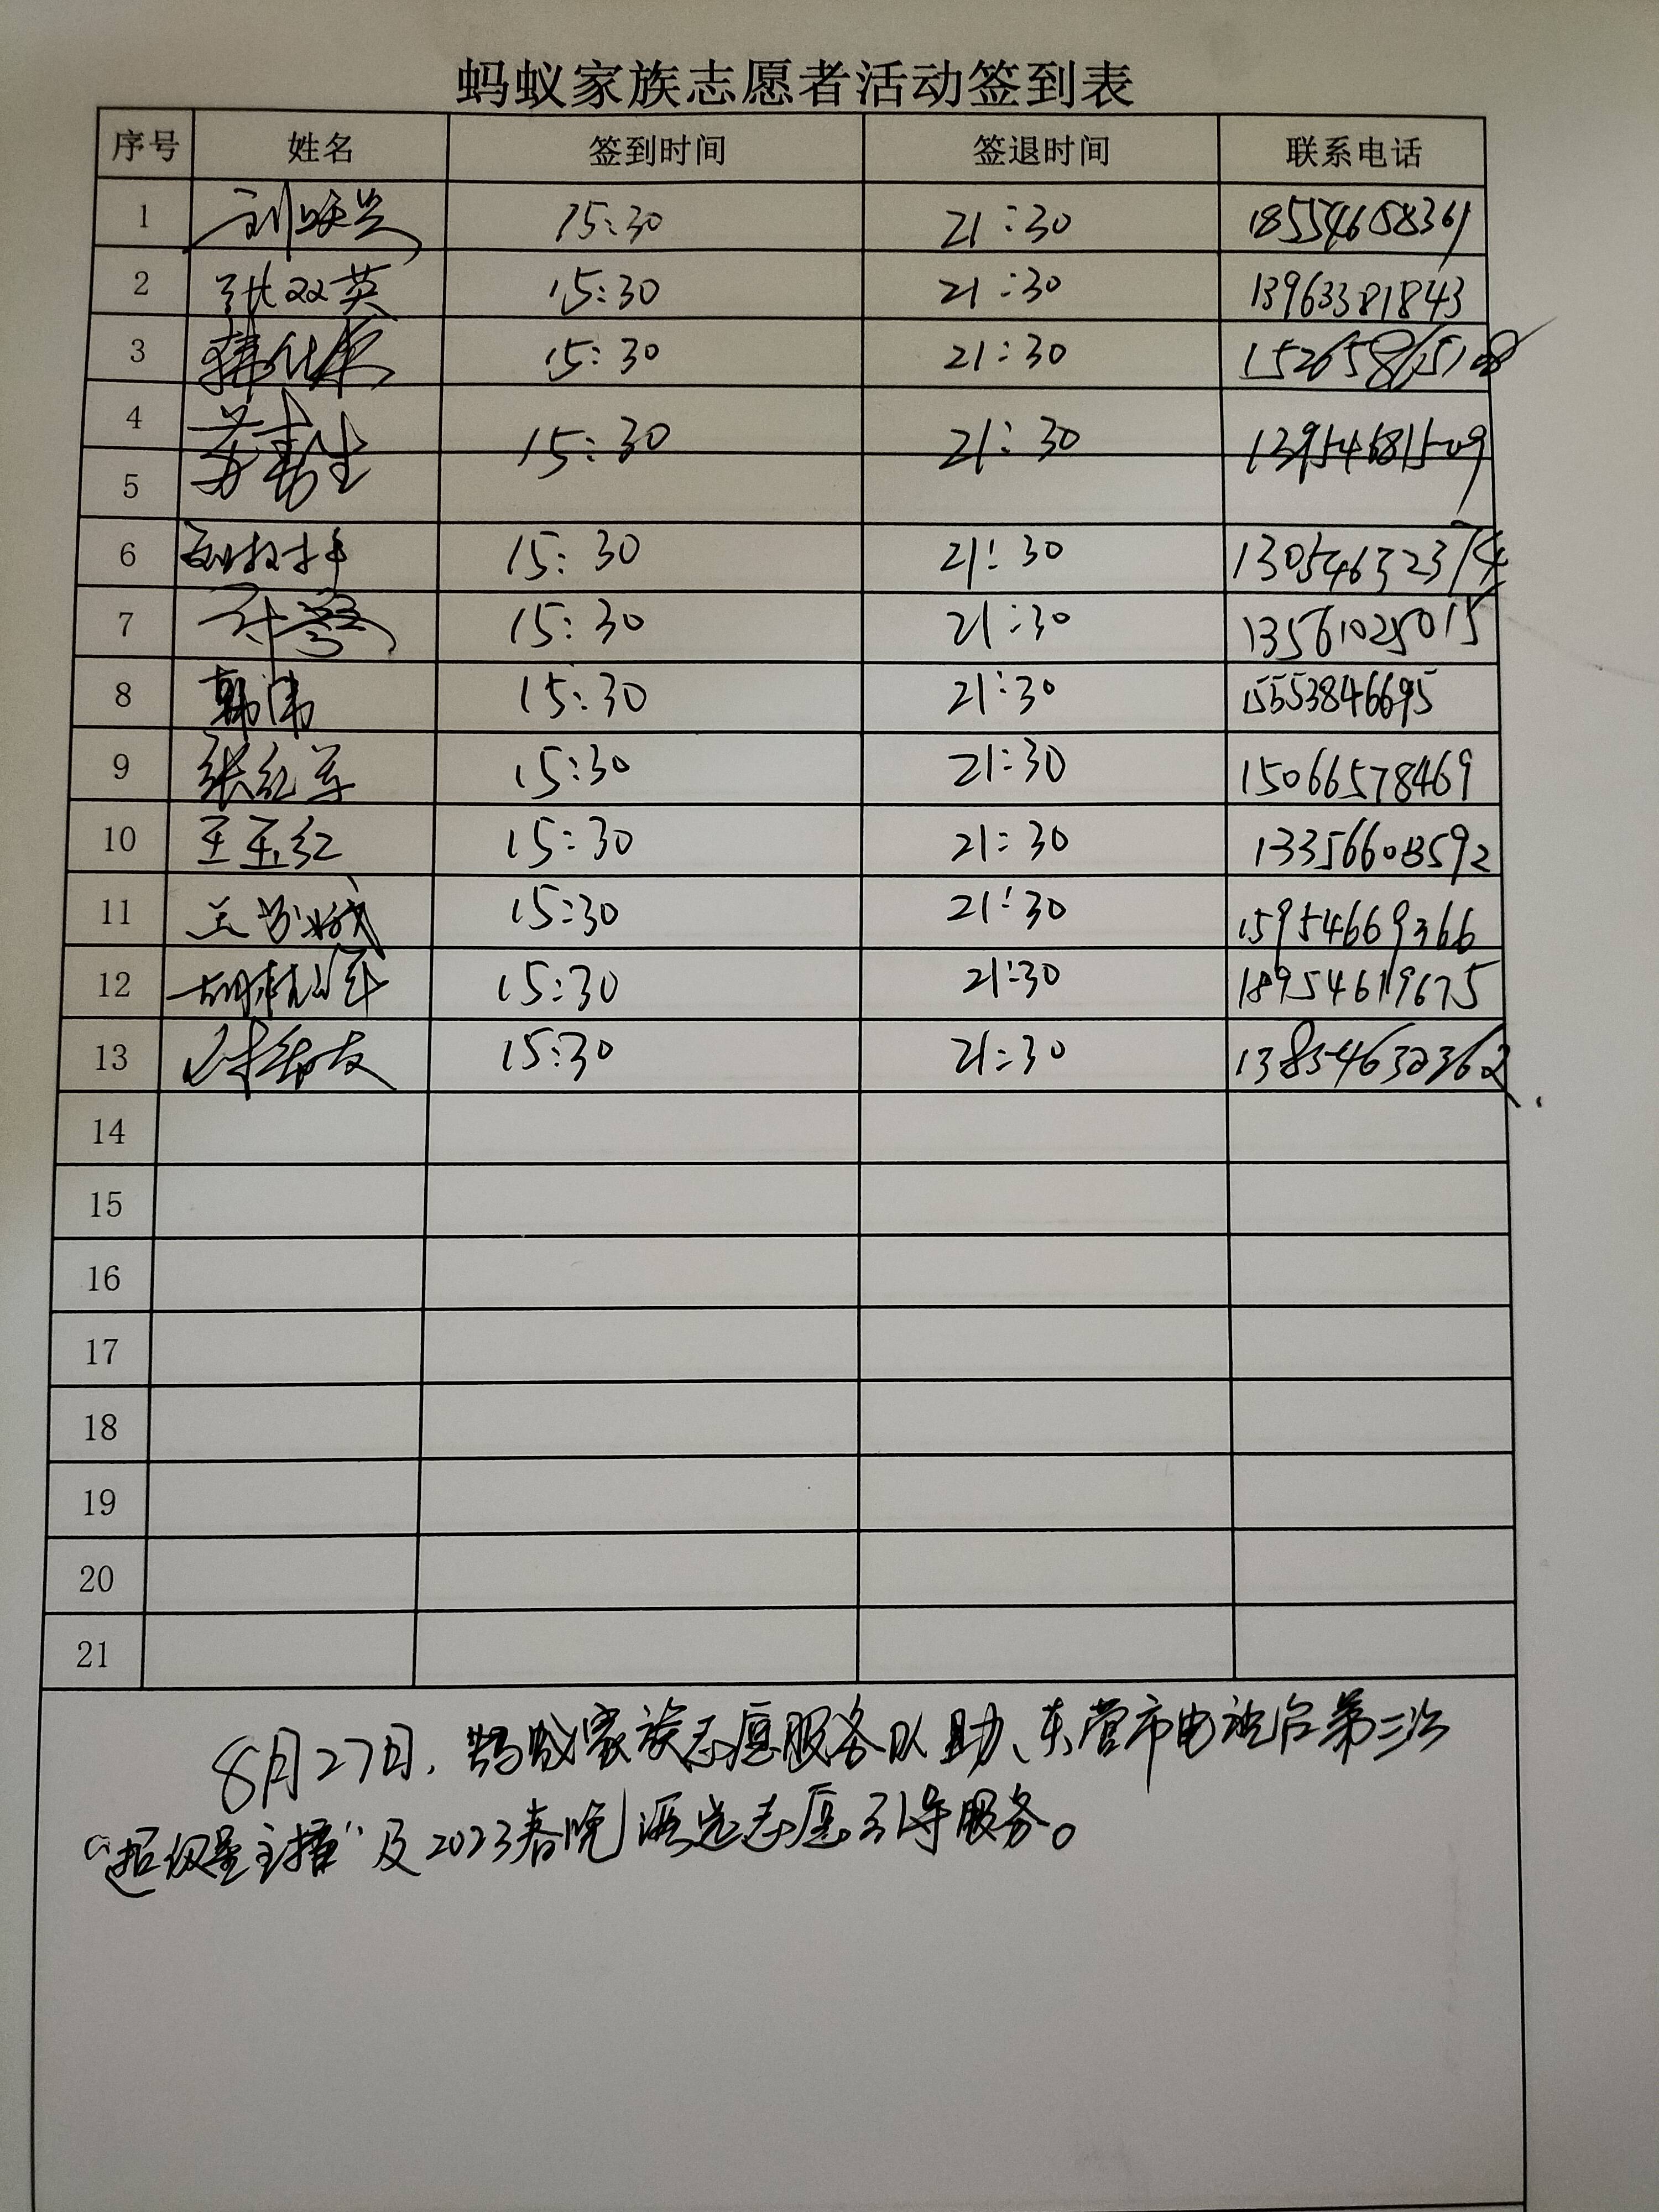 蚂蚁家族志愿者活动签到表
序号 姓名 签到时间 签退时间 联系电话
1 15:30 21:30 18554658361
2 张双英 15:30 21:30 13963381843
3 15:30 21:30
4 15:30 21:30 13954681509
5
6 15:30 21:30
7 15:30 21:30 13561025015
8 韩伟 15:30 21:30 15553846695
9 张红军 15:30 21:30 15066578469
10 王玉红 15:30 21:30
11 15:30 21:30 15954669366
12 15:30 21:30 18954619675
13 15:30 21:30 13854632362
14
15
16
17
18
19
20
21
8月27日,蚂蚁家族志愿服务队助、东营市电视台第三次
“超级星主播”及2023春晚海选志愿引导服务。